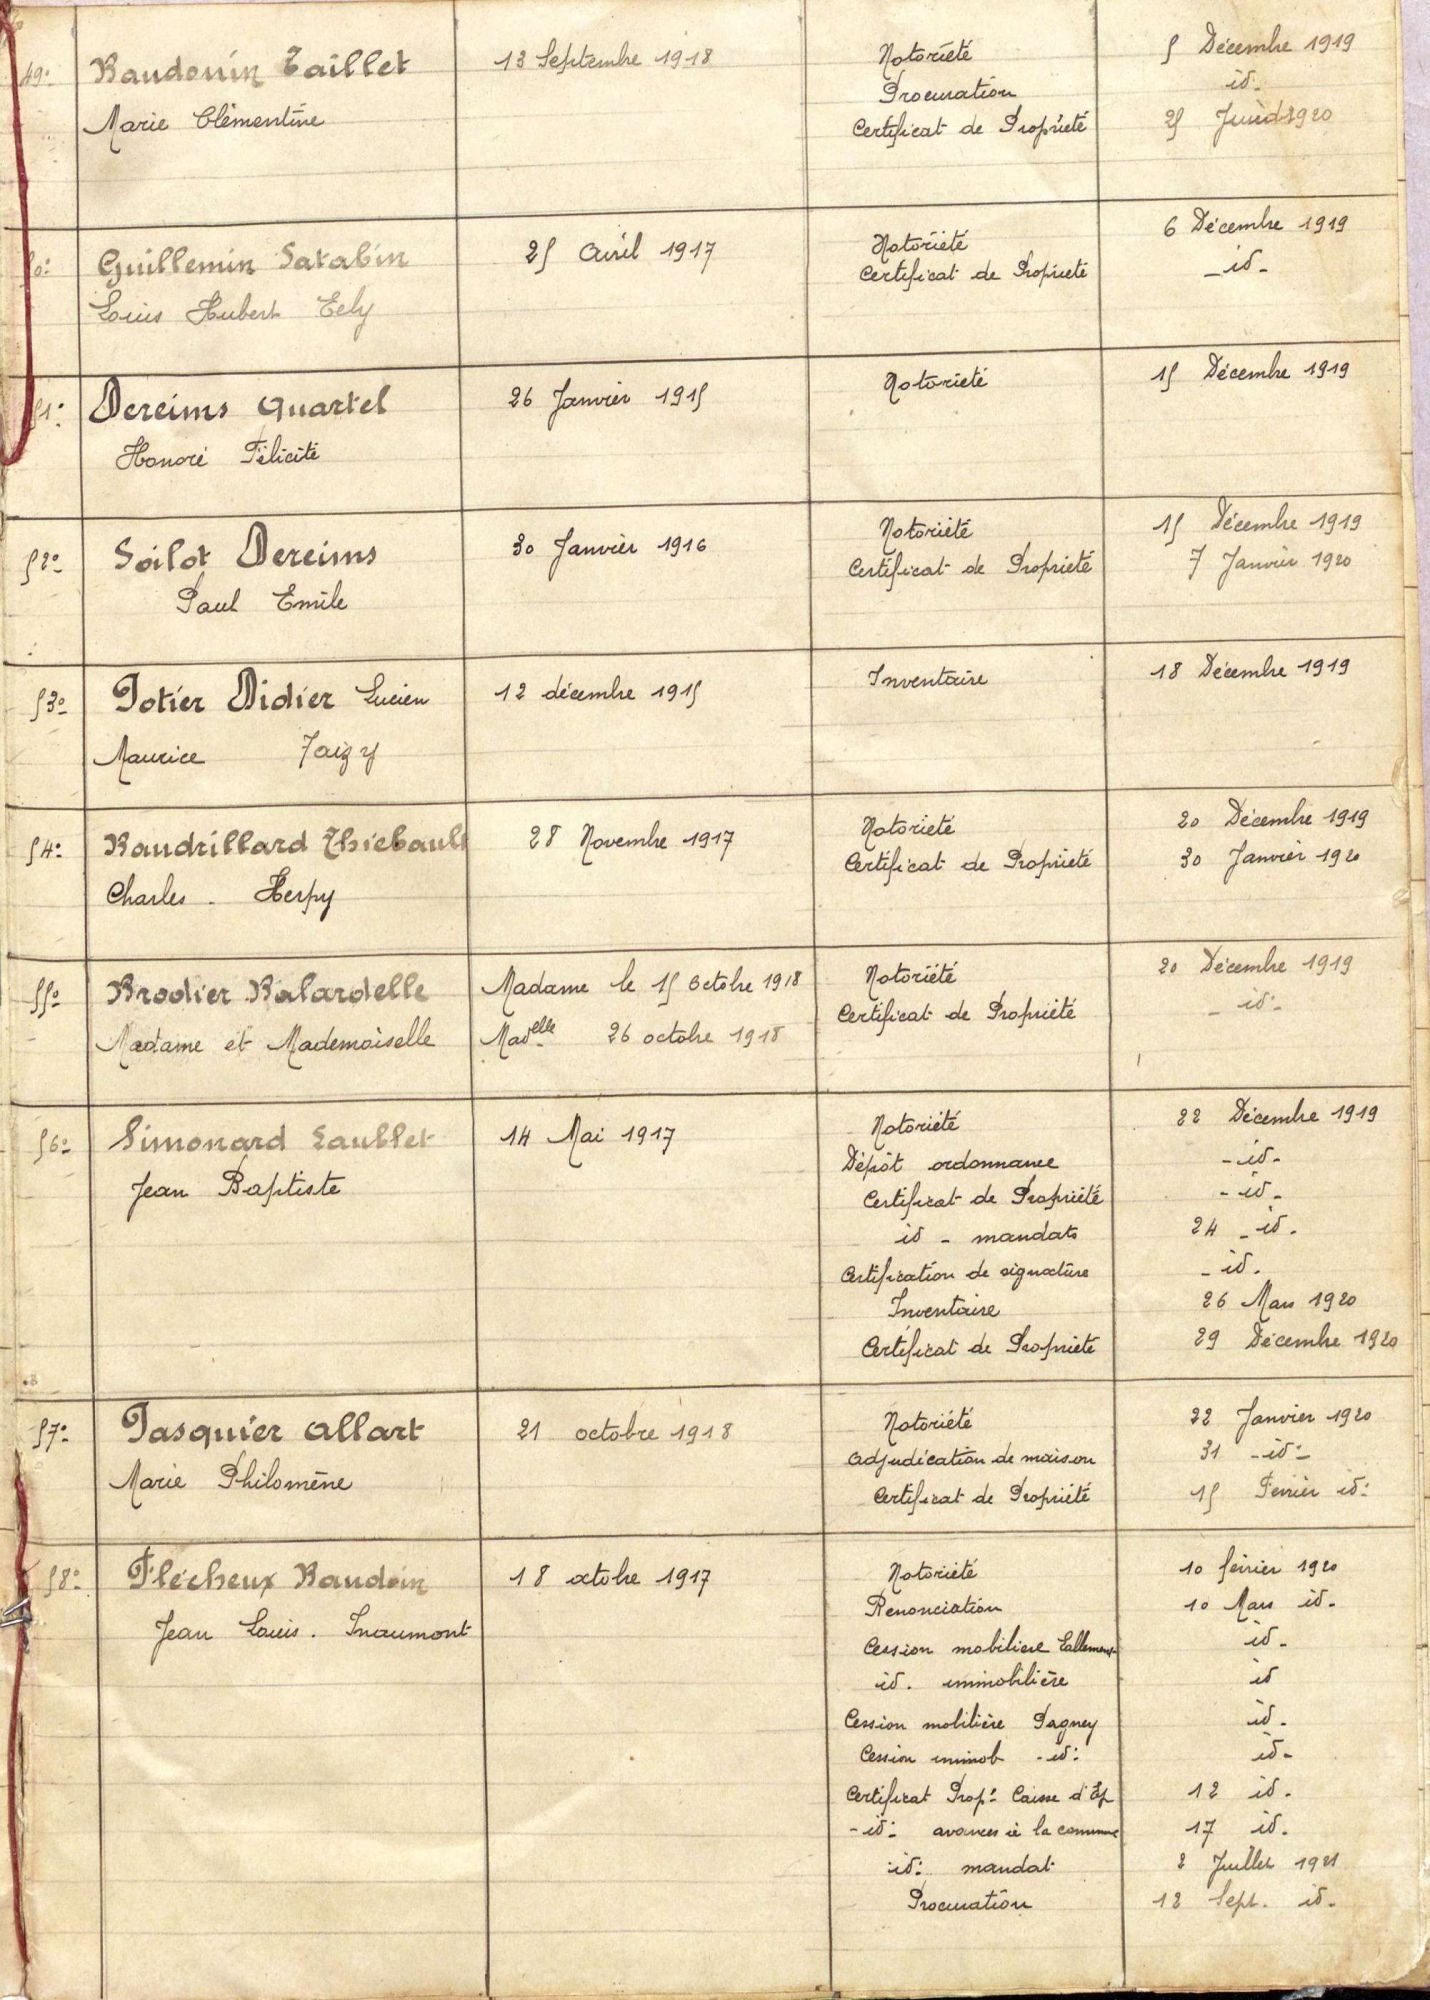 49º Baudouin Taillet 13 Septembre 1918 Notoriété 5 Décembre 1919
Procuration id.
Marie Clémentine Certificat de Propriété 25 1920
50º Guillemin Satabin 25 Avril 1917 Notoriété 6 Décembre 1919
Certificat de Propriété - id -
Louis Hubert Ecly
51º Dereims Quartel 26 Janvier 1915 Notoriété 15 Décembre 1919
Honoré Félicité
52º Soilot Dereims 30 Janvier 1916 Notoriété 15 Décembre 1919
Certificat de Propriété 7 Janvier 1920
Paul Emile
53º Potier Didier Lucien 12 décembre 1915 Inventaire 18 Décembre 1919
Maurice Taizy
54º Baudrillard Thiébault 28 Novembre 1917 Notoriété 20 Décembre 1919
Certificat de Propriété 30 Janvier 1920
Charles - Herpy
55º Brodier Balardelle Madame le 15 Octobre 1918 Notoriété 20 Décembre 1919
Certificat de Propriété - id -
Madame et Mademoiselle Madelle 26 octobre 1918
56º Simonard Laubbet 14 Mai 1917 Notoriété 22 Décembre 1919
Dépôt ordonnance - id -
Jean Baptiste Certificat de Propriété - id -
id - mandats 24 - id -
Certification de signature - id -
Inventaire 26 Mars 1920
Certificat de Propriété 29 Décembre 1920
57º Pasquier Allart 21 octobre 1918 Notoriété 22 Janvier 1920
adjudication de maison 31 - id -
Marie Philomène Certificat de Propriété 15 Février id -
58º Flécheux Baudoin 18 octobre 1917 Notoriété 10 février 1920
Renonciation 10 Mars id -
Jean Louis . Inaumont Cession mobilière id -
id . immobilière id
Cession mobilière Pagney id -
Cession immob - id - id -
Certificat Prop. Caisse d'Ep 12 id -
- id - avances à la commune 17 id -
id - mandat 2 Juillet 1921
Procuration 12 Sept. id -